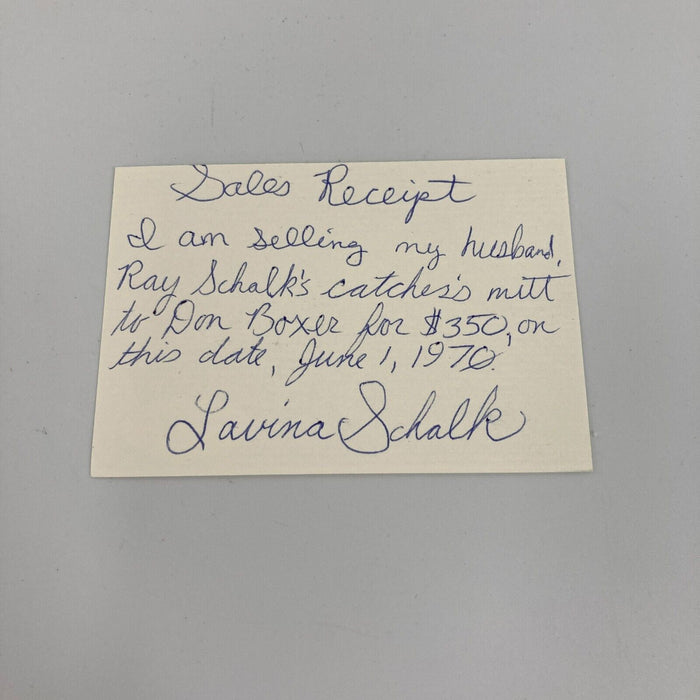 Sales Receipt
I am selling my husband,
Ray Schalk's catcher's mitt
to Don Boxer for $350, on
this date, June 1, 1970.
Lavina Schalk